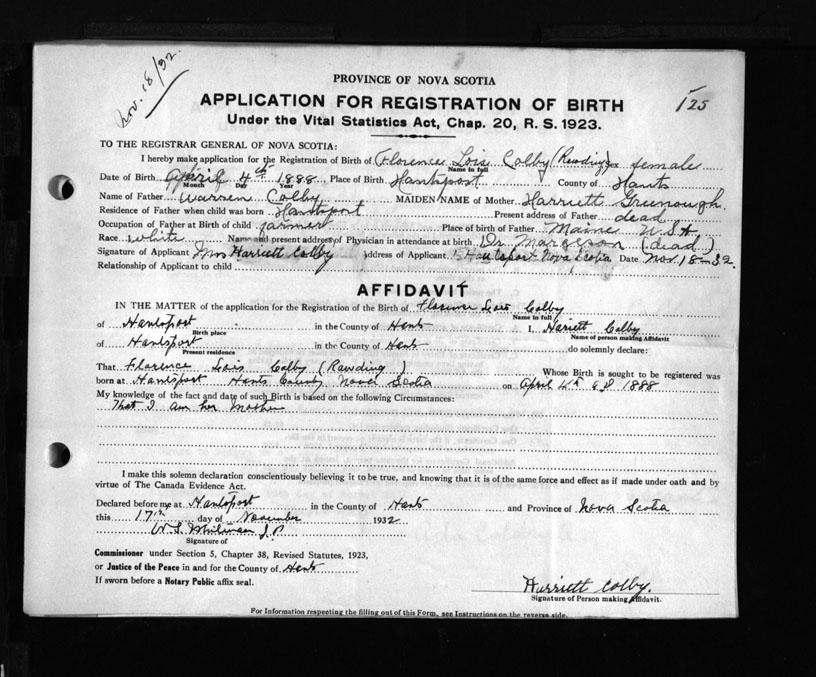 Nov. 18/32.
PROVINCE OF NOVA SCOTIA
APPLICATION FOR REGISTRATION OF BIRTH
125
Under the Vital Statistics Act, Chap. 20, R. S. 1923.
TO THE REGISTRAR GENERAL OF NOVA SCOTIA:
I hereby make application for the Registration of Birth of Florence Lois Colby (Rawding) female
Name in full
Date of Birth April 4th 1888 Place of Birth Hantsport County of Hants
Month Day Year
Name of Father Warren Colby MAIDEN NAME of Mother Harriett Greenough
Residence of Father when child was born Hantsport Present address of Father dead
Occupation of Father at Birth of child farmer Place of birth of Father Maine U.S.A
Race white Name and present address of Physician in attendance at birth Dr. Margeson (dead)
Signature of Applicant Mrs Harriett Colby Address of Applicant Hantsport Nova Scotia Date Nov. 18-32.
Relationship of Applicant to child
AFFIDAVIT
IN THE MATTER of the application for the Registration of the Birth of Florence Lois Colby
Name in full
of Hantsport in the County of Hants I, Harriett Colby
Birth place Name of person making Affidavit
of Hantsport in the County of Hants do solemnly declare:
Present residence
That Florence Lois Colby (Rawding) Whose Birth is sought to be registered was
born at Hantsport Hants County Nova Scotia on April 4th 1888
My knowledge of the fact and date of such Birth is based on the following Circumstances:
That I am her Mother
I make this solemn declaration conscientiously believing it to be true, and knowing that it is of the same force and effect as if made under oath and by
virtue of The Canada Evidence Act.
Declared before me at Hantsport in the County of Hants and Province of Nova Scotia
this 17th day of November 1932
W. S. Whitman J.P.
Signature of
Commissioner under Section 5, Chapter 38, Revised Statutes, 1923,
or Justice of the Peace in and for the County of Hants
If sworn before a Notary Public affix seal.
Harriett Colby.
Signature of Person making Affidavit.
For Information respecting the filling out of this Form, see Instructions on the reverse side.